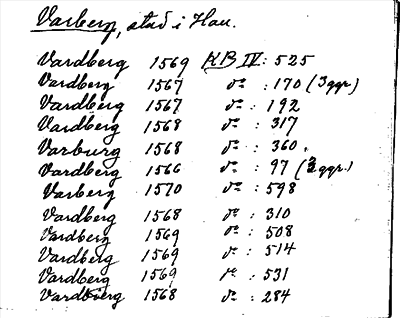 Varberg, stad i Hall.
Vardberg 1569 KB IV: 525
Vardberg 1567 do : 170 (3 ggr)
Vardberg 1567 do : 192
Vardberg 1568 do : 317
Varburg 1568 do : 360.
Vardberg 1566 do : 97 (2 ggr.)
Varberg 1570 do : 598
Vardberg 1568 do : 310
Vardberg 1569 do : 508
Vardberg 1569 do : 514
Vardberg 1569 do : 531
Vardbierg 1568 do : 284